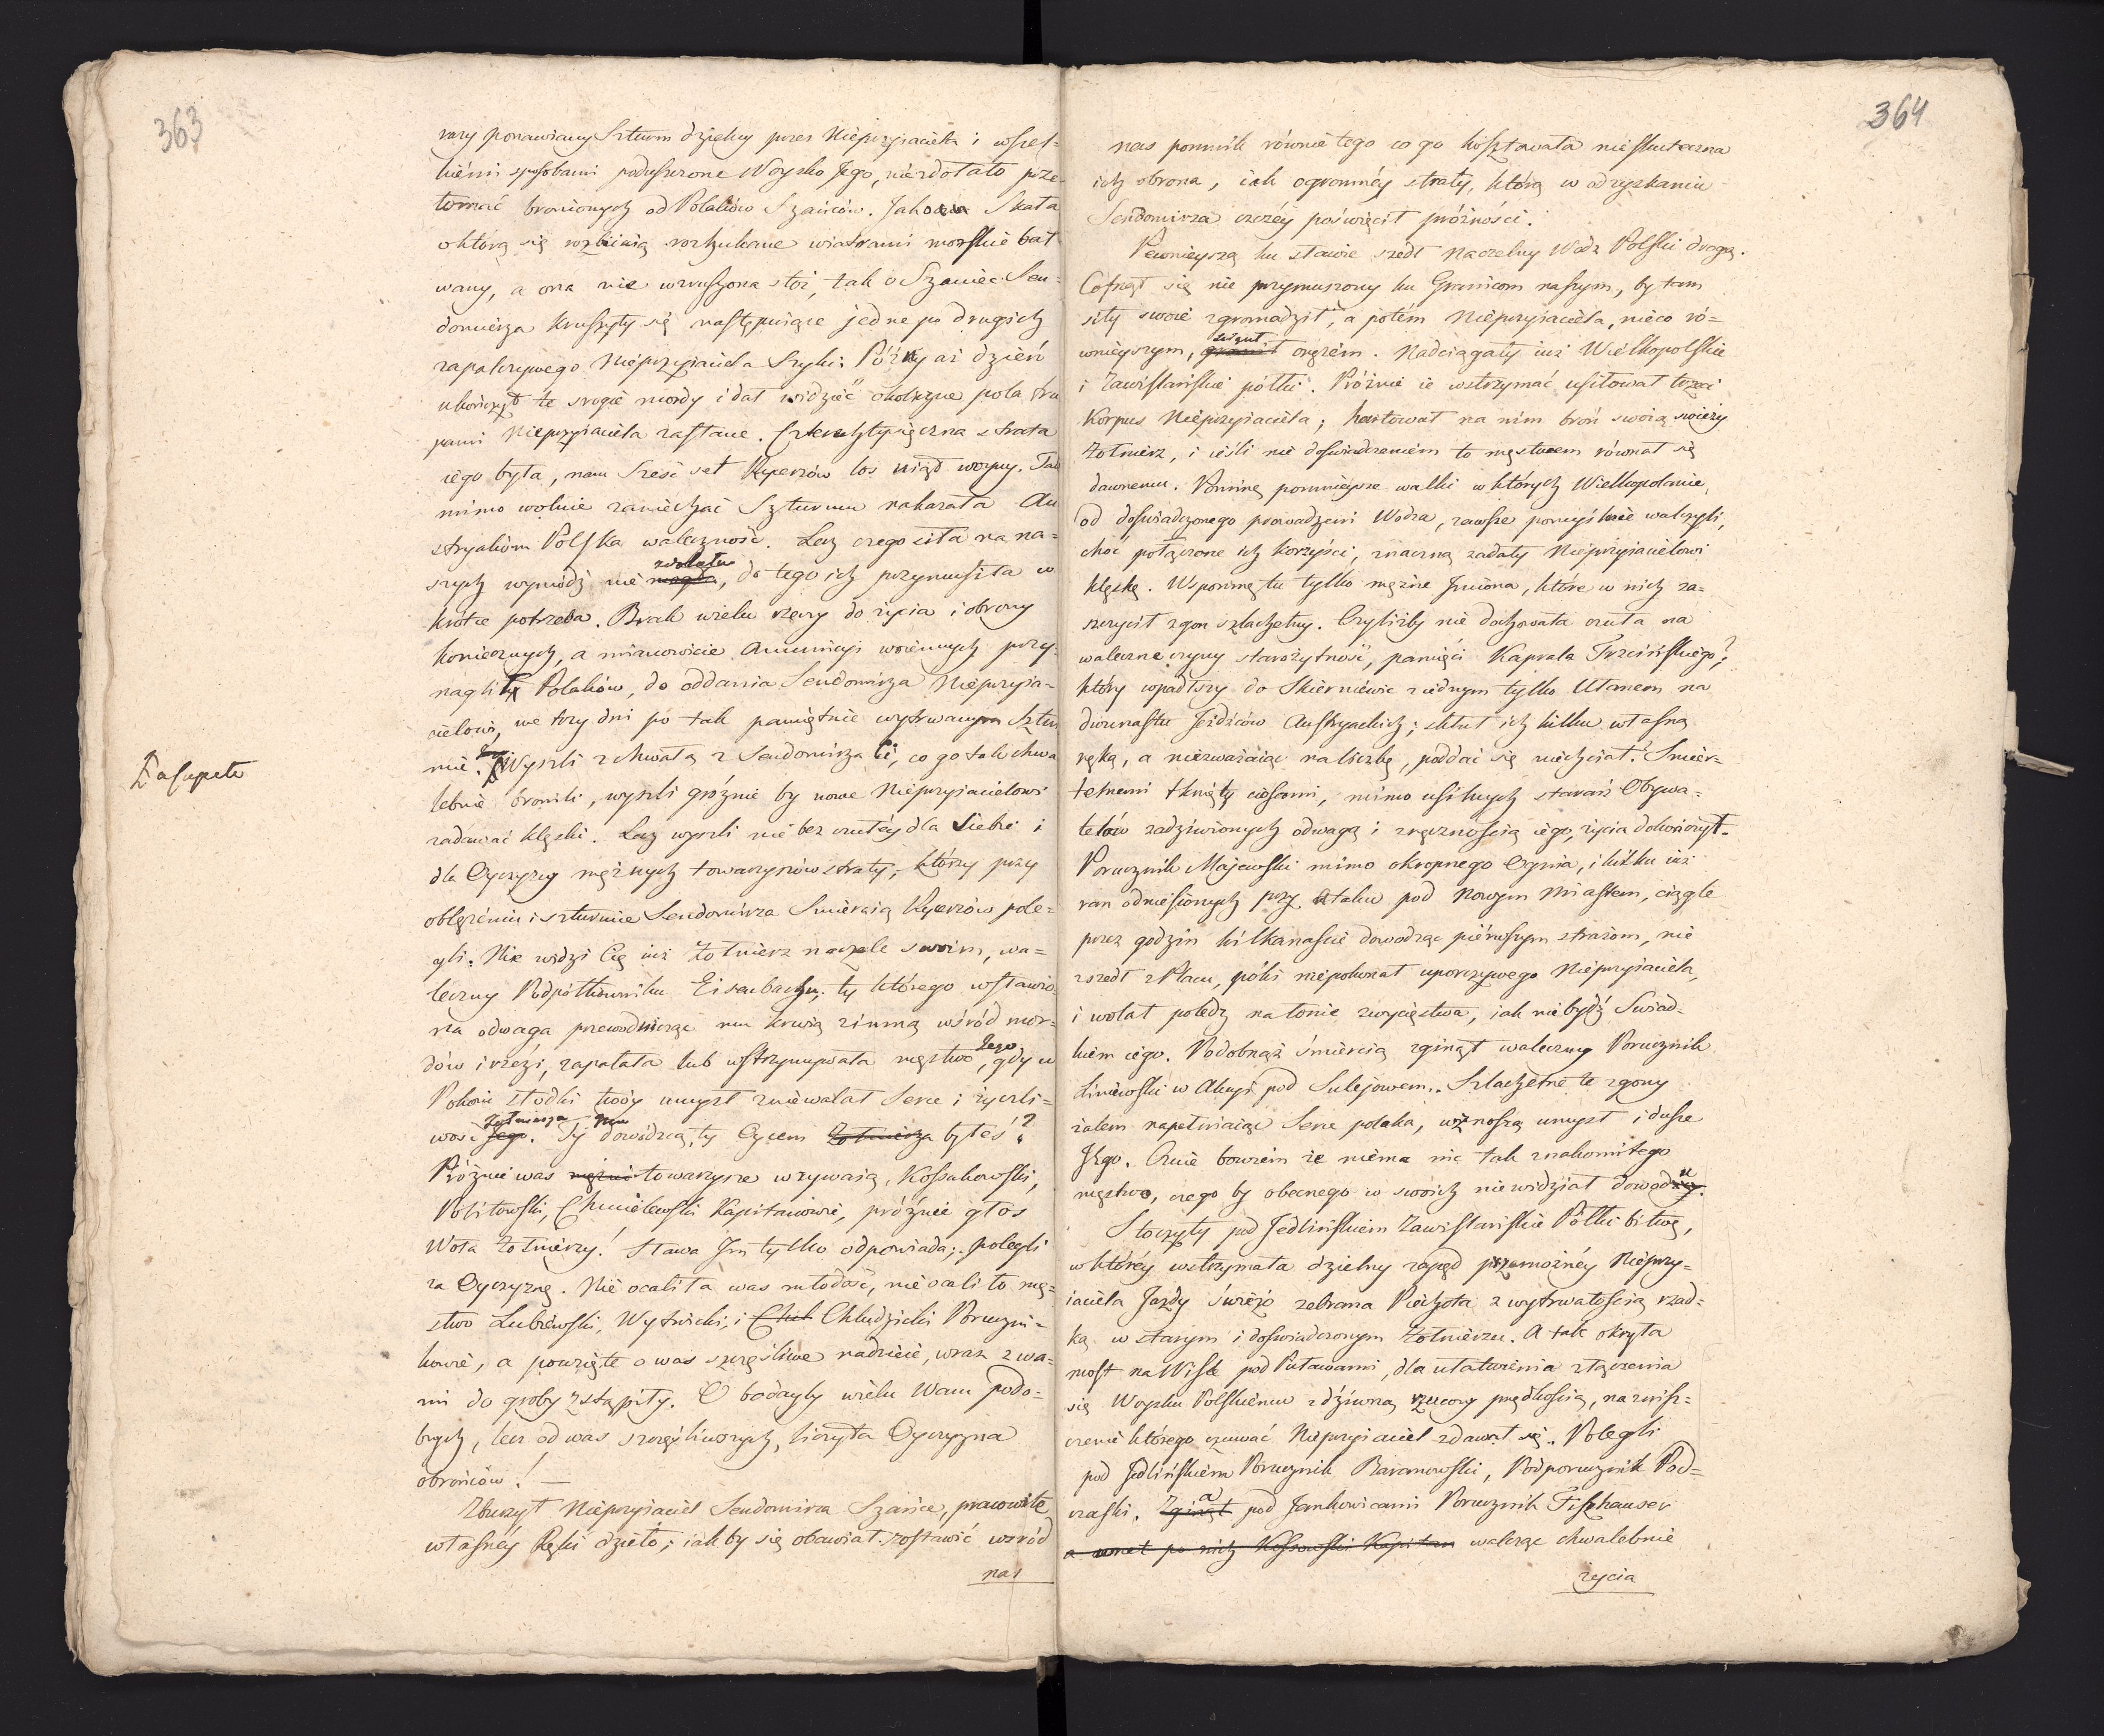 363
razy ponawiany Szturm dzielny przez Nieprzyiaciela i wszel-
kiémi sposobami poduszczone Woysko Jego, niezdołało prze-
łamać bronionych od Polaków Szańców. Jako Skała
o którą się rozbiiaią rozhukane wiatrami morskie bał-
wany, a ona nie wzruszona stoi, tak o Szaniec Sen-
domierza kruszyły się następuiące jedne po drugich
zapalczywego Nieprzyiaciela Szyki. Póżny aż dzień
ukończył te srogie mordy i dał widzieć okoliczne pola tru
pami Nieprzyiaciela zasłane. Czterotysięczna strata
iego była, nam Sześć set Rycerzów los wziął woyny. Tak
mimo wolnie zaniechać Szturmu nakazała Au
stryakóm Polska waleczność. Lecz czego siła na na-
szych wymódz nie mogła zdołała, do tego ich przymusiła w
krótce potrzeba. Brak wielu rzeczy do życia i obrony
koniecznych, a mianowicie Ammunicyi woiennych przy-
nagliły Polaków, do oddania Sendomirza Nieprzyia-
cielowi, we trzy dni po tak pamiętnie wytrwanym Sztur
mie. Wyszli z chwałą z Sendomirza Ci, co go tak chwa
Zasupeto
lebnie bronili, wyszli gróznie by nowe Nieprzyiacielowi
zadawać klęski. Lecz wyszli nie bez czułéy dla Siebie i
dla Oyczyzny mężnych towarzyszów straty, którzy przy
oblężéniu i szturmie Sendomirza Smiercią Rycerzów pole-
gli. Nie widzi Cię iuż Żołnierz na czele swoim, wa-
leczny Podpółkowniku Eisenbachu; ty którego wsławio-
na odwaga przewodnicząc mu krwią zimną wśród mor-
dów i rzézi, zapalała lub wstrzymywała męstwo Jego, gdy w
Pokoiu słodki twóy umysł zniewalał Serce i życzli-
wość Jego Żołnierza. Ty Mu dowódzcą, ty Oycem Żołnierza byłeś?
Próżnie was mężni towarzysze wzywaią, Kossakowski,
Politowski, Chmielewski Kapitanowie, próżnie głos
Woła Żołnierzy! Sława Jm tylko odpowiada; polegli
za Oyczyznę. Nie ocaliła was młodość, nie ocaliło mę-
stwo Lubiewski, Wytwicki, i Chl Chludzicki Poruczni-
kowie, a powzięte o was szczęśliwe nadzieie, wraz z wa-
mi do groby zstąpiły. O bodayby wielu Wam podo-
bnych, lecz od was szczęśliwszych, liczyła Oyczyzna
obrońców! —
Zburzył Nieprzyiaciel Sendomirza Szańce, pracowite
własnéy Ręki dzieło; iak by się obawiał zostawić wsród
nas
364
nas pomnik równie tego co go kosztowała nieskuteczna
ich obrona, iak ogromnéy straty, którą w odzyskaniu
Sendomirza czczéy poświęcił próżności.
Pewnieyszą ku sławie szedł Naczelny Wódz Polski drogą.
Cofnął się nie przymuszony ku Granicom naszym, by tam
siły swoie zgromadził, a potém Nieprzyiaciela, nieco ró-
wnieyszym, orężem. Nadciągały iuż Wielkopolskie
i Zawislańskie półki. Próżnie ie wstrzymać usiłował trzeci
Korpus Nieprzyiaciela; hartował na nim broń swoią swieży
Żołnierz, i ieśli nie doświadczeniem to męstwem równał się
dawnemu. Pominę pomnieysze walki w których Wielkopolanie,
od doświadczonego prowadzeni Wodza, zawsze pomyślnie walczyli,
choć połączone ich korzyści, znaczną zadały Nieprzyiacielowi
klęskę. Wspomnę tu tylko mężne Jmiona, które w nich za-
szczycił zgon szlachetny. Czyliżby nie dochowała czuła na
waleczne czyny starożytność, pamięci Kaprala Trzcińskiego?
który wpadłszy do Skierniéwic z iednym tylko Ułanem na
dwunastu Jeźdzców Austryackich; skłuł ich kilku własną
ręką, a niezważaiąc na liczbę, poddać się niechciał. Smier-
telnemi tknięty ciosami, mimo usilnych starań Obywa-
telów zadziwionych odwagą i zręcznością iego, życia dokończył.
Porucznik Majewski mimo okropnego Ognia, i kilku iuż
ran odniesionych przy Ataku pod Nowym Miastem, ciągle
przez godzin kilkanaście dowodząc piérwszym strażom, nie
zszedł z Placu, póki niepokonał uporczywego Nieprzyiaciela,
i wolał poledz na łonie zwycięstwa, iak niebydź Swiad-
kiem iego. Podobnąż śmiercią zginął waleczny Porucznik
Liniewski w Akcyi pod Sulejowem. Szlachetne te zgony
żalem napełniaiąc Serce polaka, wznoszą umysł i dusze
Jego. Czuie bowiem że niéma nic tak znakomitego
męstwo, czego by obecnego w swoich niewidział dowodu.
Stoczyły pod Jedlińskiem Zawislańskie Półki bitwę,
w któréy wstrzymała dzielny zapęd przemożnéy Nieprzy-
iaciela Jazdy świéżo zebrana Piechota z wytrwałością rzad-
ką w starym i doświadczonym Żołnierzu. A tak okryła
most na Wisle pod Puławami, dla ułatwienia złączenia
się Woysku Polskiému z dziwną rzucony prędkością, na znisz-
czenie którego czuwać Nieprzyiaciel zdawał się. Polegli
pod Jedlińskiém Porucznik Baranowski, Podporucznik Pod-
czaski. Zginął a pod Jankowicami Porucznik Fiszhauser
a wnet po nich Kossowski Kapitan walcząc chwalebnie
życia